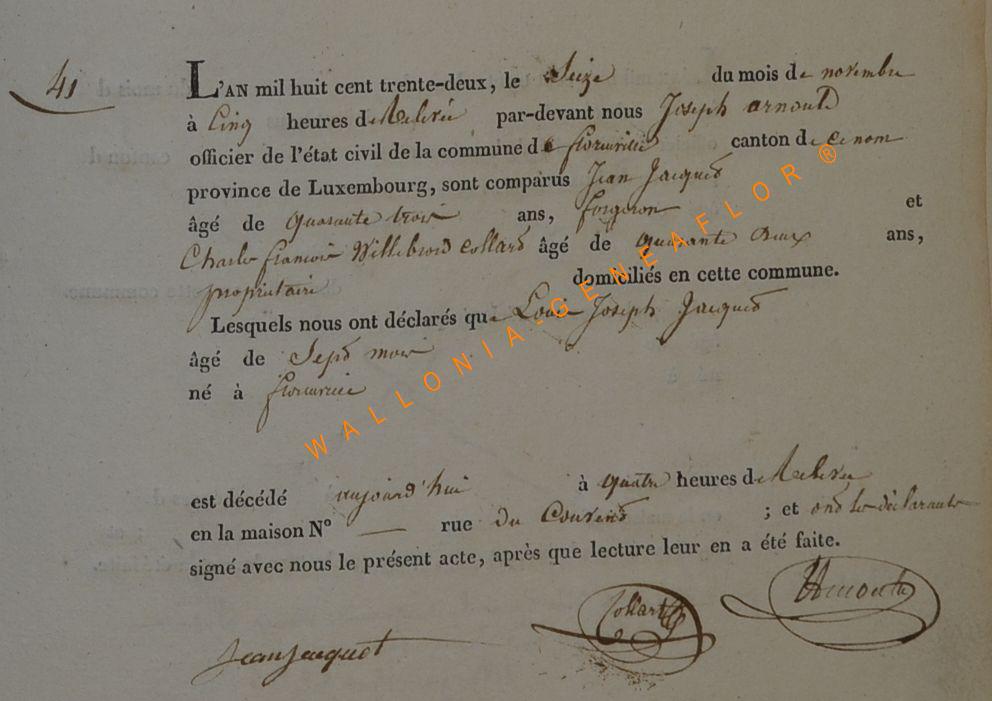 41
L'AN mil huit cent trente-deux, le Seize du mois de novembre
à Cinq heures de Relevée par-devant nous Joseph arnould
officier de l'état civil de la commune de florenville canton de ce nom
province de Luxembourg, sont comparus Jean Jacquet
âgé de quarante trois ans, forgeron et
Charles françois Willebrord Collard âgé de quarante deux ans,
propriétaire domiciliés en cette commune.
Lesquels nous ont déclarés que Louis Joseph Jacquet
âgé de Sept mois
né à florenville
est décédé aujourd'hui à quatre heures de Relevée
en la maison N° — rue du Couvent ; et ont les déclarants
signé avec nous le présent acte, après que lecture leur en a été faite.
Jean Jacquet Collard Arnould
WALLONIA-GENEAFLOR ®